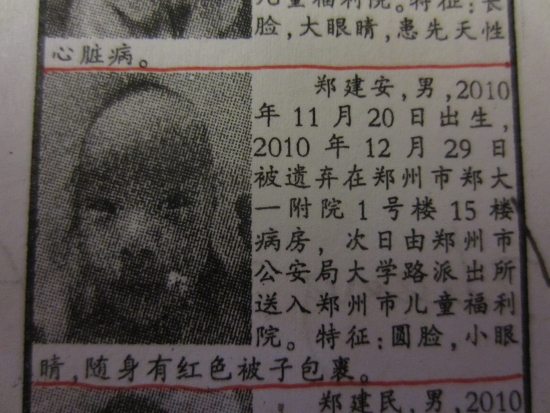 儿童福利院。特征：长
脸，大眼睛，患先天性
心脏病。
郑建安，男，2010
年 11 月 20 日出生，
2010 年 12 月 29 日
被遗弃在郑州市郑大
一附院 1 号楼 15 楼
病房，次日由郑州市
公安局大学路派出所
送入郑州市儿童福利
院。特征：圆脸，小眼
睛，随身有红色被子包裹。
郑建民，男，2010